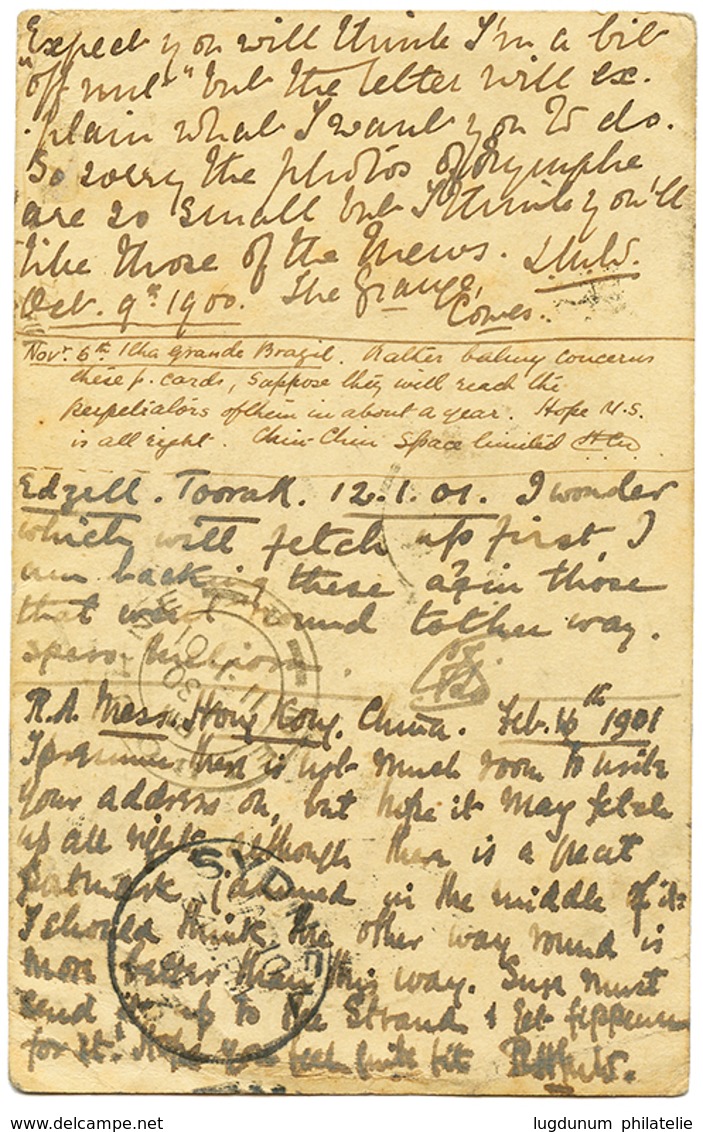 Expect you will think I'm a bit
"off nut" but the letter will ex-
plain what I want you to do.
So sorry the photos of Nymphe
are so small but I think you'll
like those of the Mews.
Oct. 9th 1900. The Grange,
Cowes.
Novr. 6th Ilha Grande Brazil. Rather balmy concerns
these p. cards, suppose they will reach the
perpetrators of them in about a year. Hope U.S.
is all right. Chin-Chin Space limited
Edzell. Toorak. 12.1.01. I wonder
which will fetch up first, I
am backing these agin those
that went round tother way.
R.A. Mess. Hong Kong. China. Feb. 16th 1901
I presume there is not much room to write
your address on, but hope it may fetch
up all right although there is a great
postmark jammed in the middle of it:
I should think the other way round is
more better than this way. Sum must
send them up to the Strand & get
for it! Hope you feel quite fit
SYDNEY
delcampe.net
lugdunum philatelie